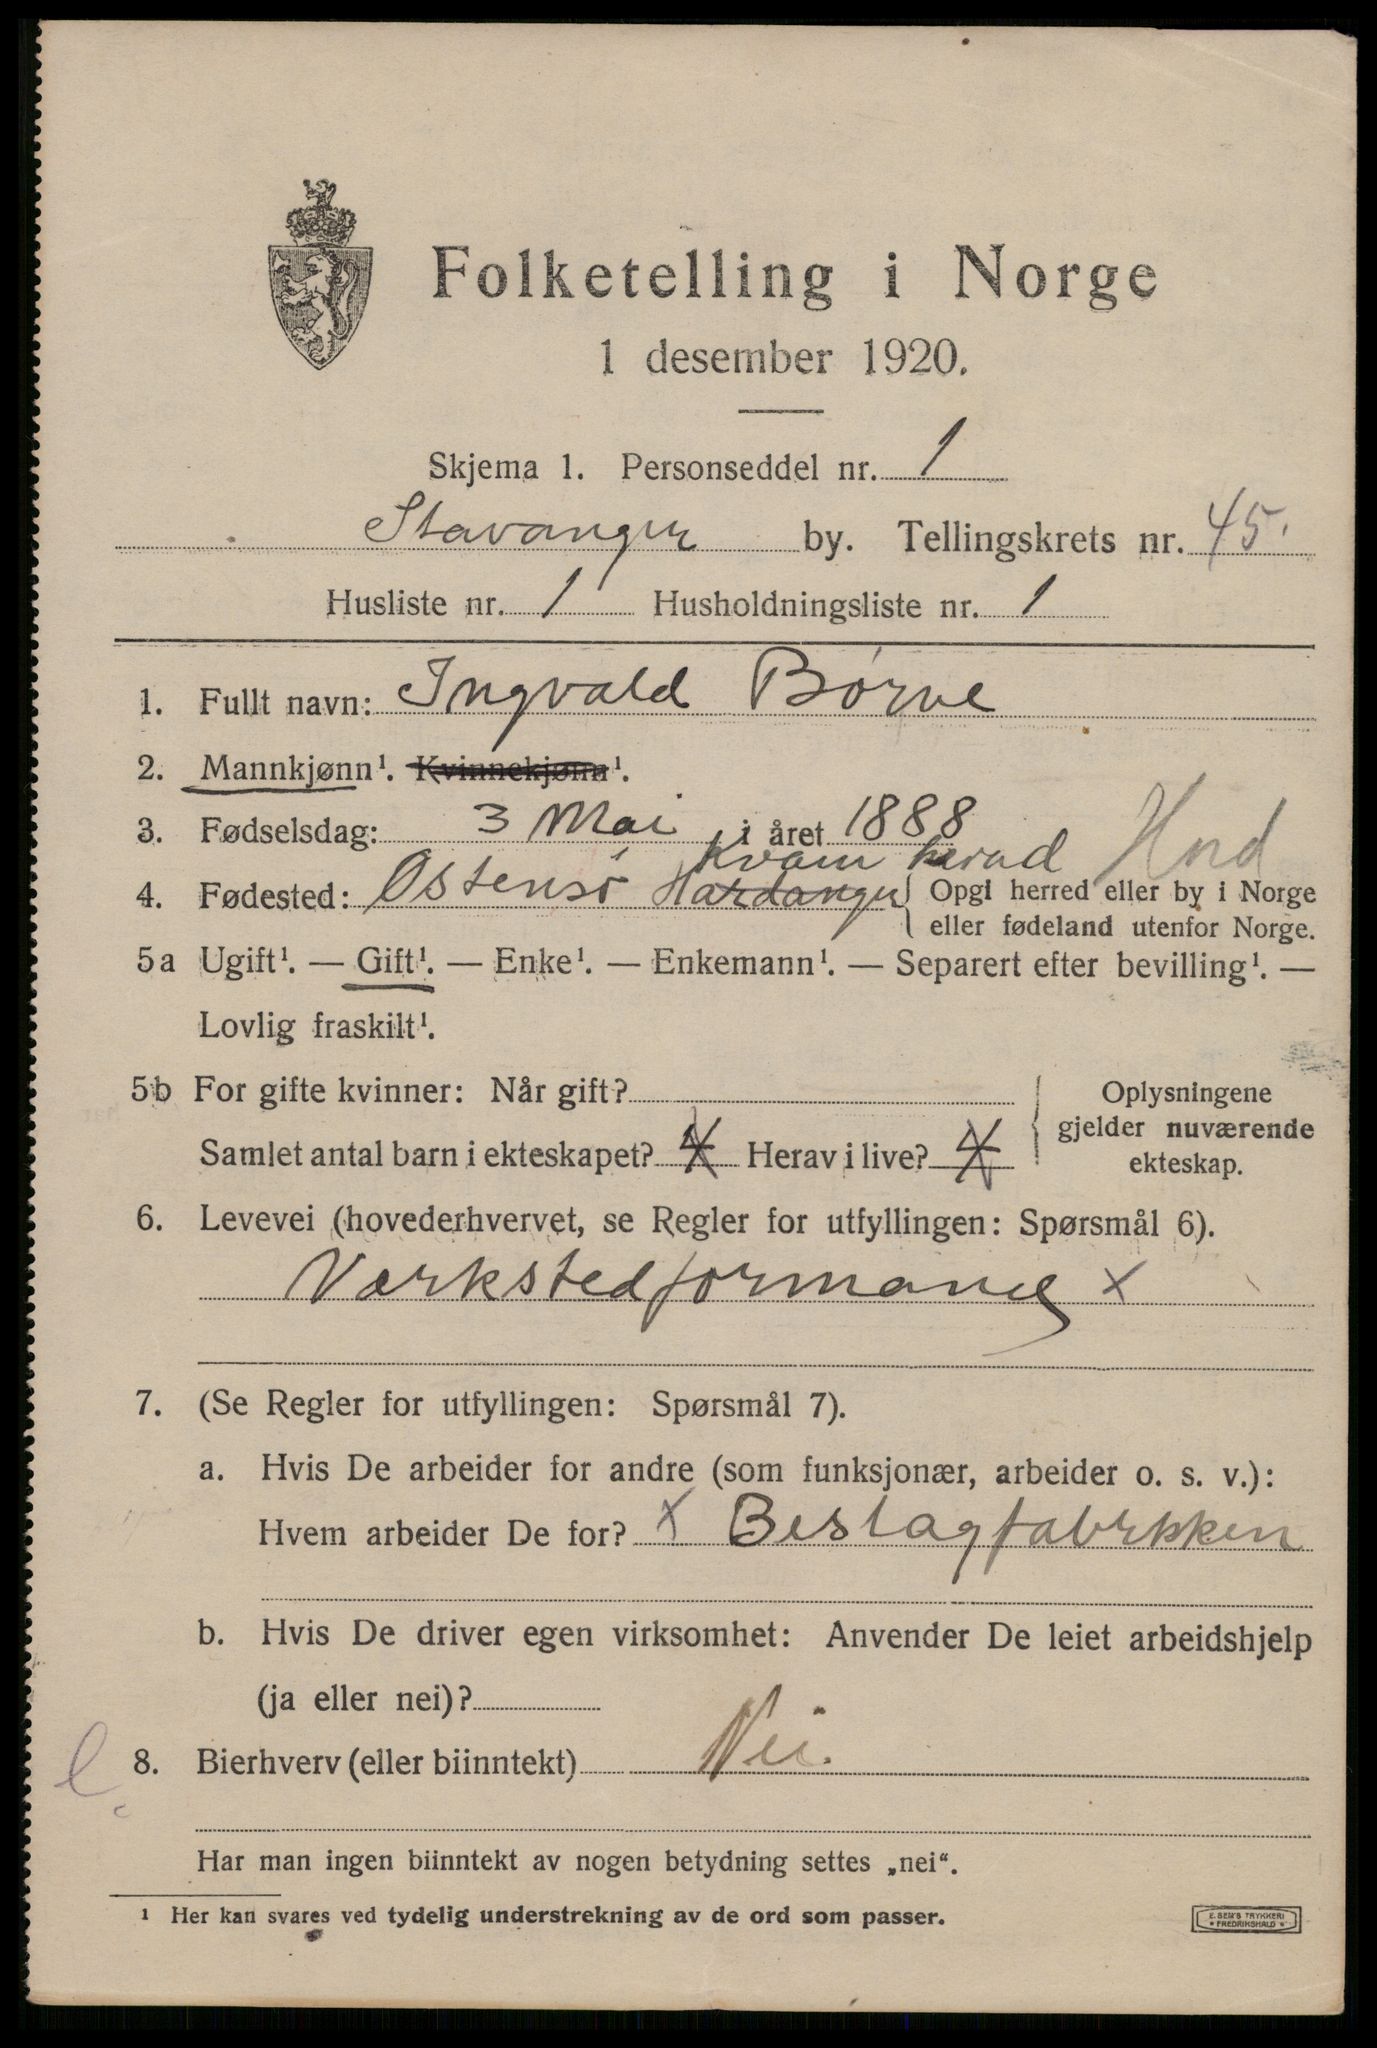 Folketelling i Norge
1 desember 1920.
Skjema 1. Personseddel nr. 1
Stavanger by. Tellingskrets nr. 45.
Husliste nr. 1 Husholdningsliste nr. 1
1. Fullt navn: Ingvald Børve
2. Mannkjønn¹. Kvinnekjønn¹.
3. Fødselsdag: 3 Mai i året 1888
Kvam herad Hord
4. Fødested: Østensø Hardanger { Opgi herred eller by i Norge
eller fødeland utenfor Norge.
5a Ugift¹. — Gift¹. — Enke¹. — Enkemann¹. — Separert efter bevilling¹. —
Lovlig fraskilt¹.
5b For gifte kvinner: Når gift?
Samlet antal barn i ekteskapet? 4 Herav i live? 4
{ Oplysningene
gjelder nuværende
ekteskap.
6. Levevei (hovederhvervet, se Regler for utfyllingen: Spørsmål 6).
Værkstedformand x
7. (Se Regler for utfyllingen: Spørsmål 7).
a. Hvis De arbeider for andre (som funksjonær, arbeider o. s. v.):
Hvem arbeider De for? x Beslagfabrikken
b. Hvis De driver egen virksomhet: Anvender De leiet arbeidshjelp
(ja eller nei)?
8. Bierhverv (eller biinntekt) Nei.
Har man ingen biinntekt av nogen betydning settes „nei“.
¹ Her kan svares ved tydelig understrekning av de ord som passer.
E. SEM'S TRYKKERI
* FREDRIKSHALD *